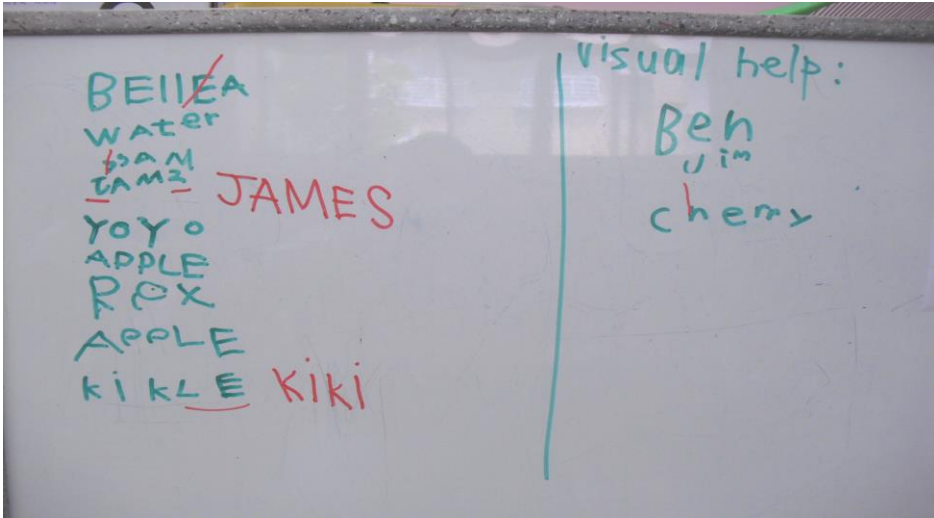 BEllEA
water
SAM
JAMZ JAMES
YoYo
APPLE
ReX
APPLE
kikLE KiKi
visual help:
Ben
Jim
cherry